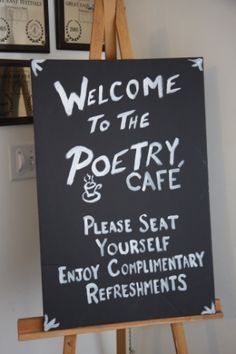 Welcome
To The
Poetry
Café
Please Seat
Yourself
Enjoy Complimentary
Refreshments